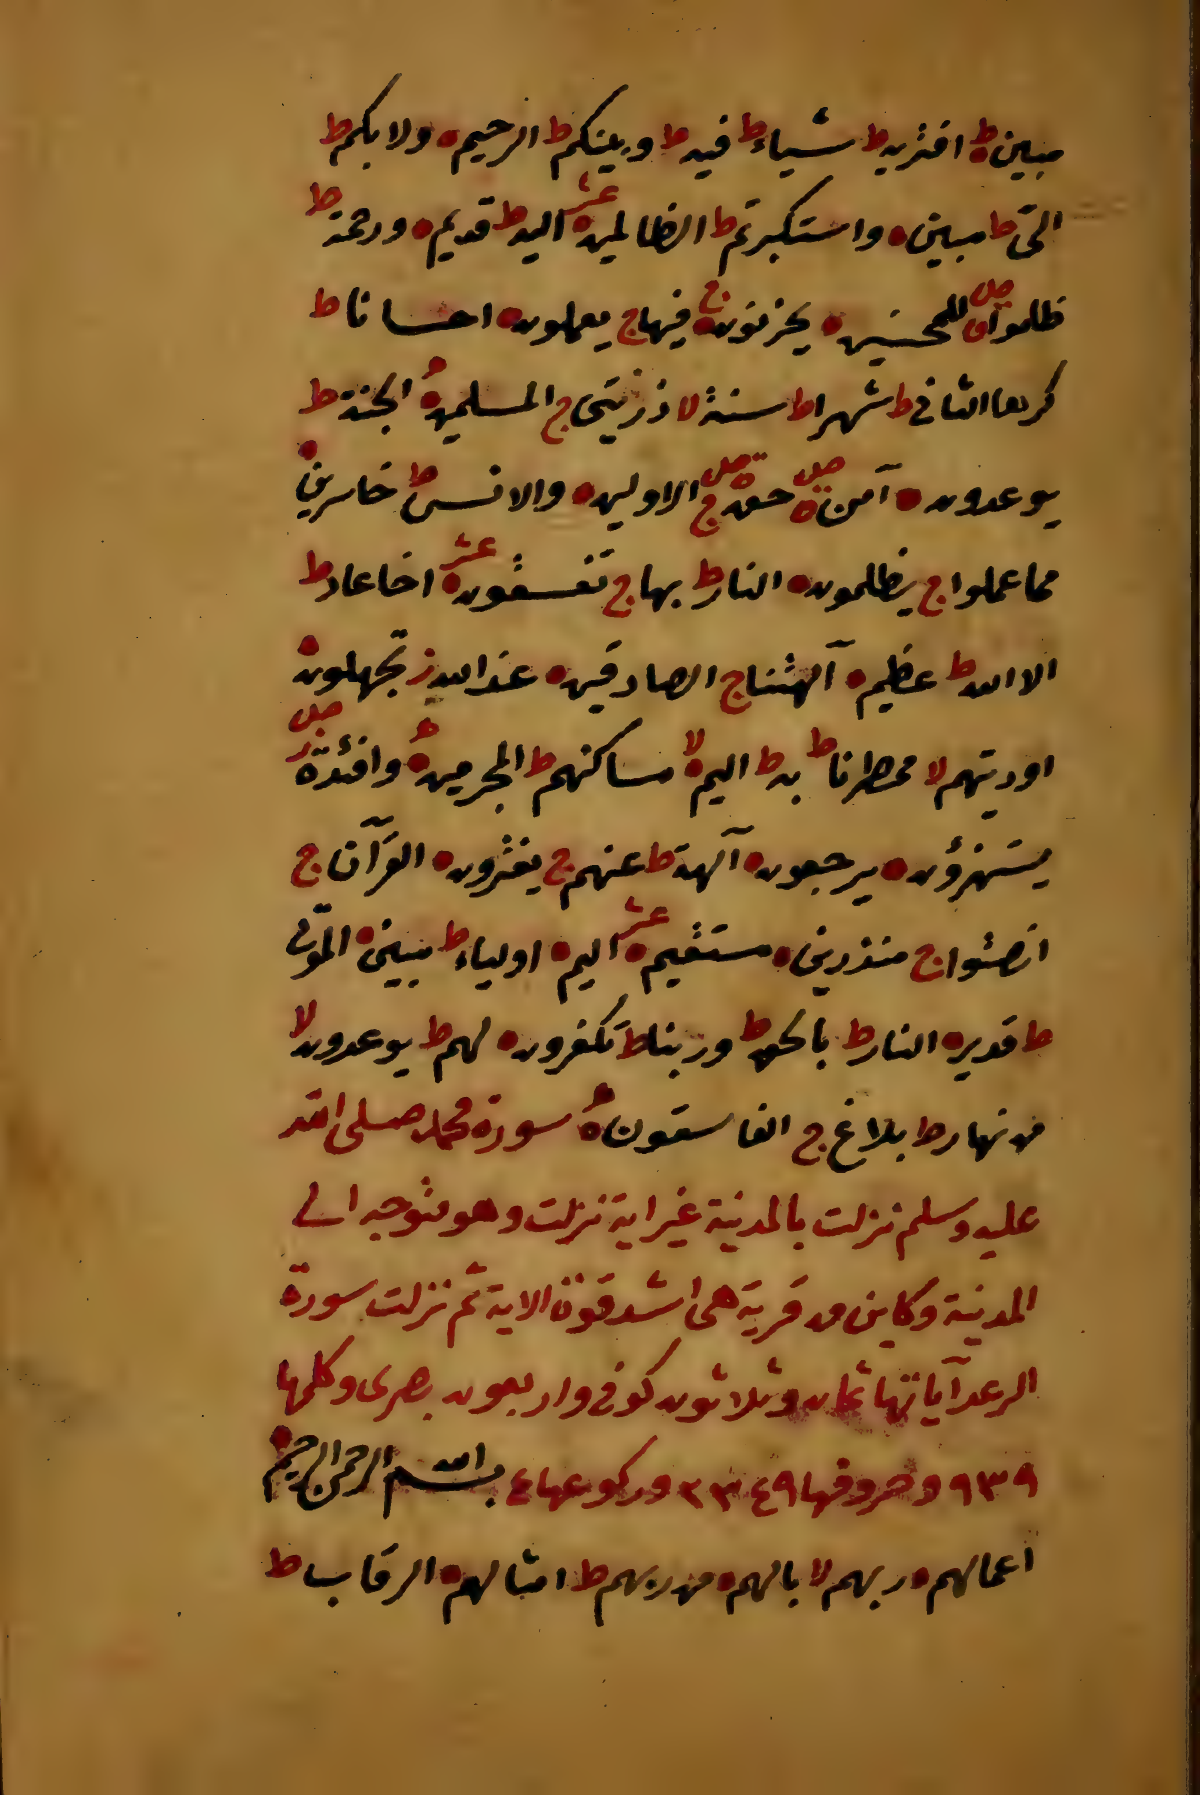 مبين ه ط افتريه ط شياء ط فيه ط وبينكم ط الرحيم ه ولا بكم ط
الىّ ط مبين ه واستكبرتم ط الظالمين ه عشر اليه ط قديم ه ورحمة ط
ظلموا ق صل للمحسنين ه يحزنون ه ج فيها ج يعملون ه احسانا ط
كرها الثانى ط شهرا ط سنة لا ذريتى ج المسلمين ه الجنة ط
يوعدون ه آمن ه صل حق ه صل ج الاولين ه والانس ط خاسرين ه
مما عملوا ج يظلمون ه النار ط بها ج تفسقون ه عشر اخا عاد ط
الا الله ط عظيم ه آلهتنا ج الصادقين ه عند الله ز تجهلون ه
اوديتهم لا ممطرنا ط به ط اليم ه لا مساكنهم ط المجرمين ه وافئدة صل ز
يستهزؤن ه يرجعون ه آلهة ط عنهم ج يفترون ه القرآن ج
انصتوا ج منذرين ه مستقيم ه عشر اليم ه اولياء ط مبين ه الموتى
ط قدير ه النار ط بالحق ط وربنا ط تكفرون ه لهم ط يوعدون لا
من نهار ط بلاغ ج الفاسقون ه سورة محمد صلى الله
عليه وسلم نزلت بالمدينة غير اية نزلت وهو متوجه الى
المدينة وكاين من قرية هى اشد قوة الاية ثم نزلت سورة
الرعد آياتها ثمان وثلاثون كوفى واربعون بصرى وكلمها
٩٣٩ وحروفها ٢٣٤٩ وركوعها ٤ بسم الله الرحمن الرحيم
اعمالهم ه ربهم لا بالهم ه من ربهم ط امثالهم ه الرقاب ط